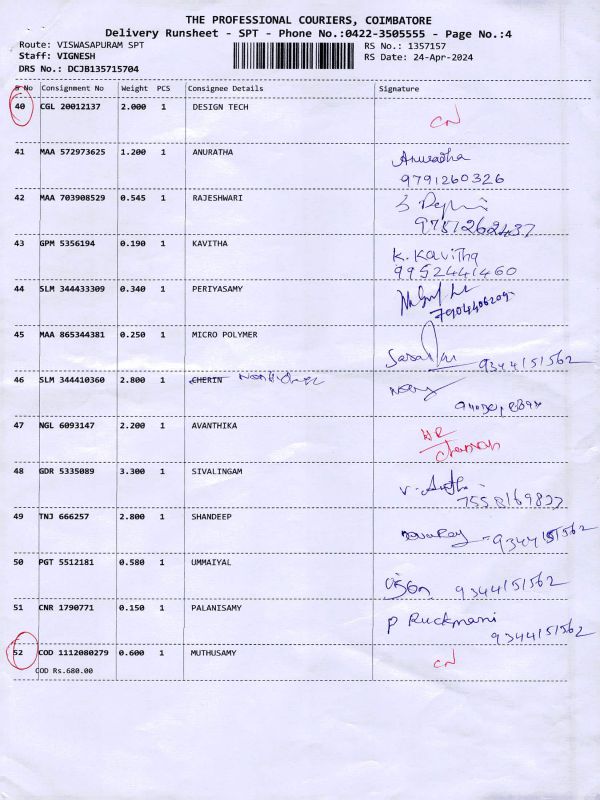 THE PROFESSIONAL COURIERS, COIMBATORE
Delivery Runsheet - SPT - Phone No.:0422-3505555 - Page No.:4
Route: VISWASAPURAM SPT
RS No.: 1357157
Staff: VIGNESH
RS Date: 24-Apr-2024
DRS No.: DCJB135715704
S No Consignment No Weight PCS Consignee Details Signature
40 CGL 20012137 2.000 1 DESIGN TECH
CN
41 MAA 572973625 1.200 1 ANURATHA Anuradha
9791260326
42 MAA 703908529 0.545 1 RAJESHWARI
9751262437
43 GPM 5356194 0.190 1 KAVITHA K. Kavitha
9952441460
44 SLM 344433309 0.340 1 PERIYASAMY
45 MAA 865344381 0.250 1 MICRO POLYMER
9344151562
46 SLM 344410360 2.800 1 CHERIN
47 NGL 6093147 2.200 1 AVANTHIKA
48 GDR 5335089 3.300 1 SIVALINGAM
49 TNJ 666257 2.800 1 SHANDEEP
9344151562
50 PGT 5512181 0.580 1 UMMAIYAL
9344151562
51 CNR 1790771 0.150 1 PALANISAMY P Ruckmani
9344151562
52 COD 1112080279 0.600 1 MUTHUSAMY CN
COD Rs.680.00